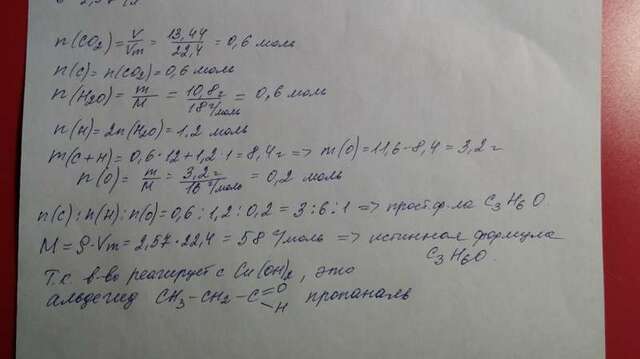 n(CO₂) = V/Vm = 13,44/22,4 = 0,6 моль
n(C) = n(CO₂) = 0,6 моль
n(H₂O) = m/M = 10,8 г/18 г/моль = 0,6 моль
n(H) = 2n(H₂O) = 1,2 моль
m(C+H) = 0,6·12+1,2·1 = 8,4 г => m(O) = 11,6-8,4 = 3,2 г
n(O) = m/M = 3,2 г/16 г/моль = 0,2 моль
n(C):n(H):n(O) = 0,6:1,2:0,2 = 3:6:1 => прост. ф-ла C₃H₆O.
M = ρ·Vm = 2,57·22,4 = 58 г/моль => истинная формула
C₃H₆O.
Т.к. в-во реагирует с Cu(OH)₂, это
альдегид CH₃-CH₂-C=O -H пропаналь